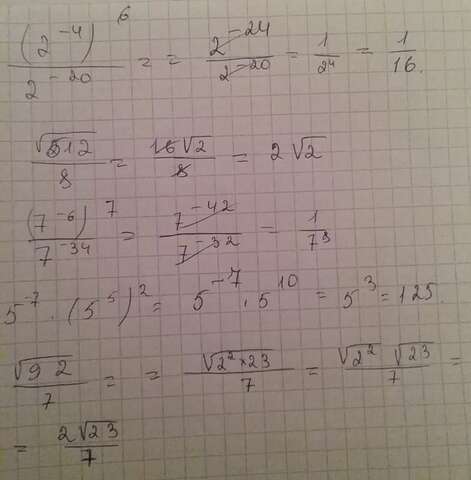 (2^-4)^6 / 2^-20 = = 2^-24 / 2^-20 = 1 / 2^4 = 1 / 16.
√512 / 8 = 16√2 / 8 = 2√2
(7^-6)^7 / 7^-34 = 7^-42 / 7^-32 = 1 / 7^8
5^-7 · (5^5)^2 = 5^-7 · 5^10 = 5^3 = 125.
√92 / 7 = = √2^2×23 / 7 = √2^2 √23 / 7 =
= 2√23 / 7